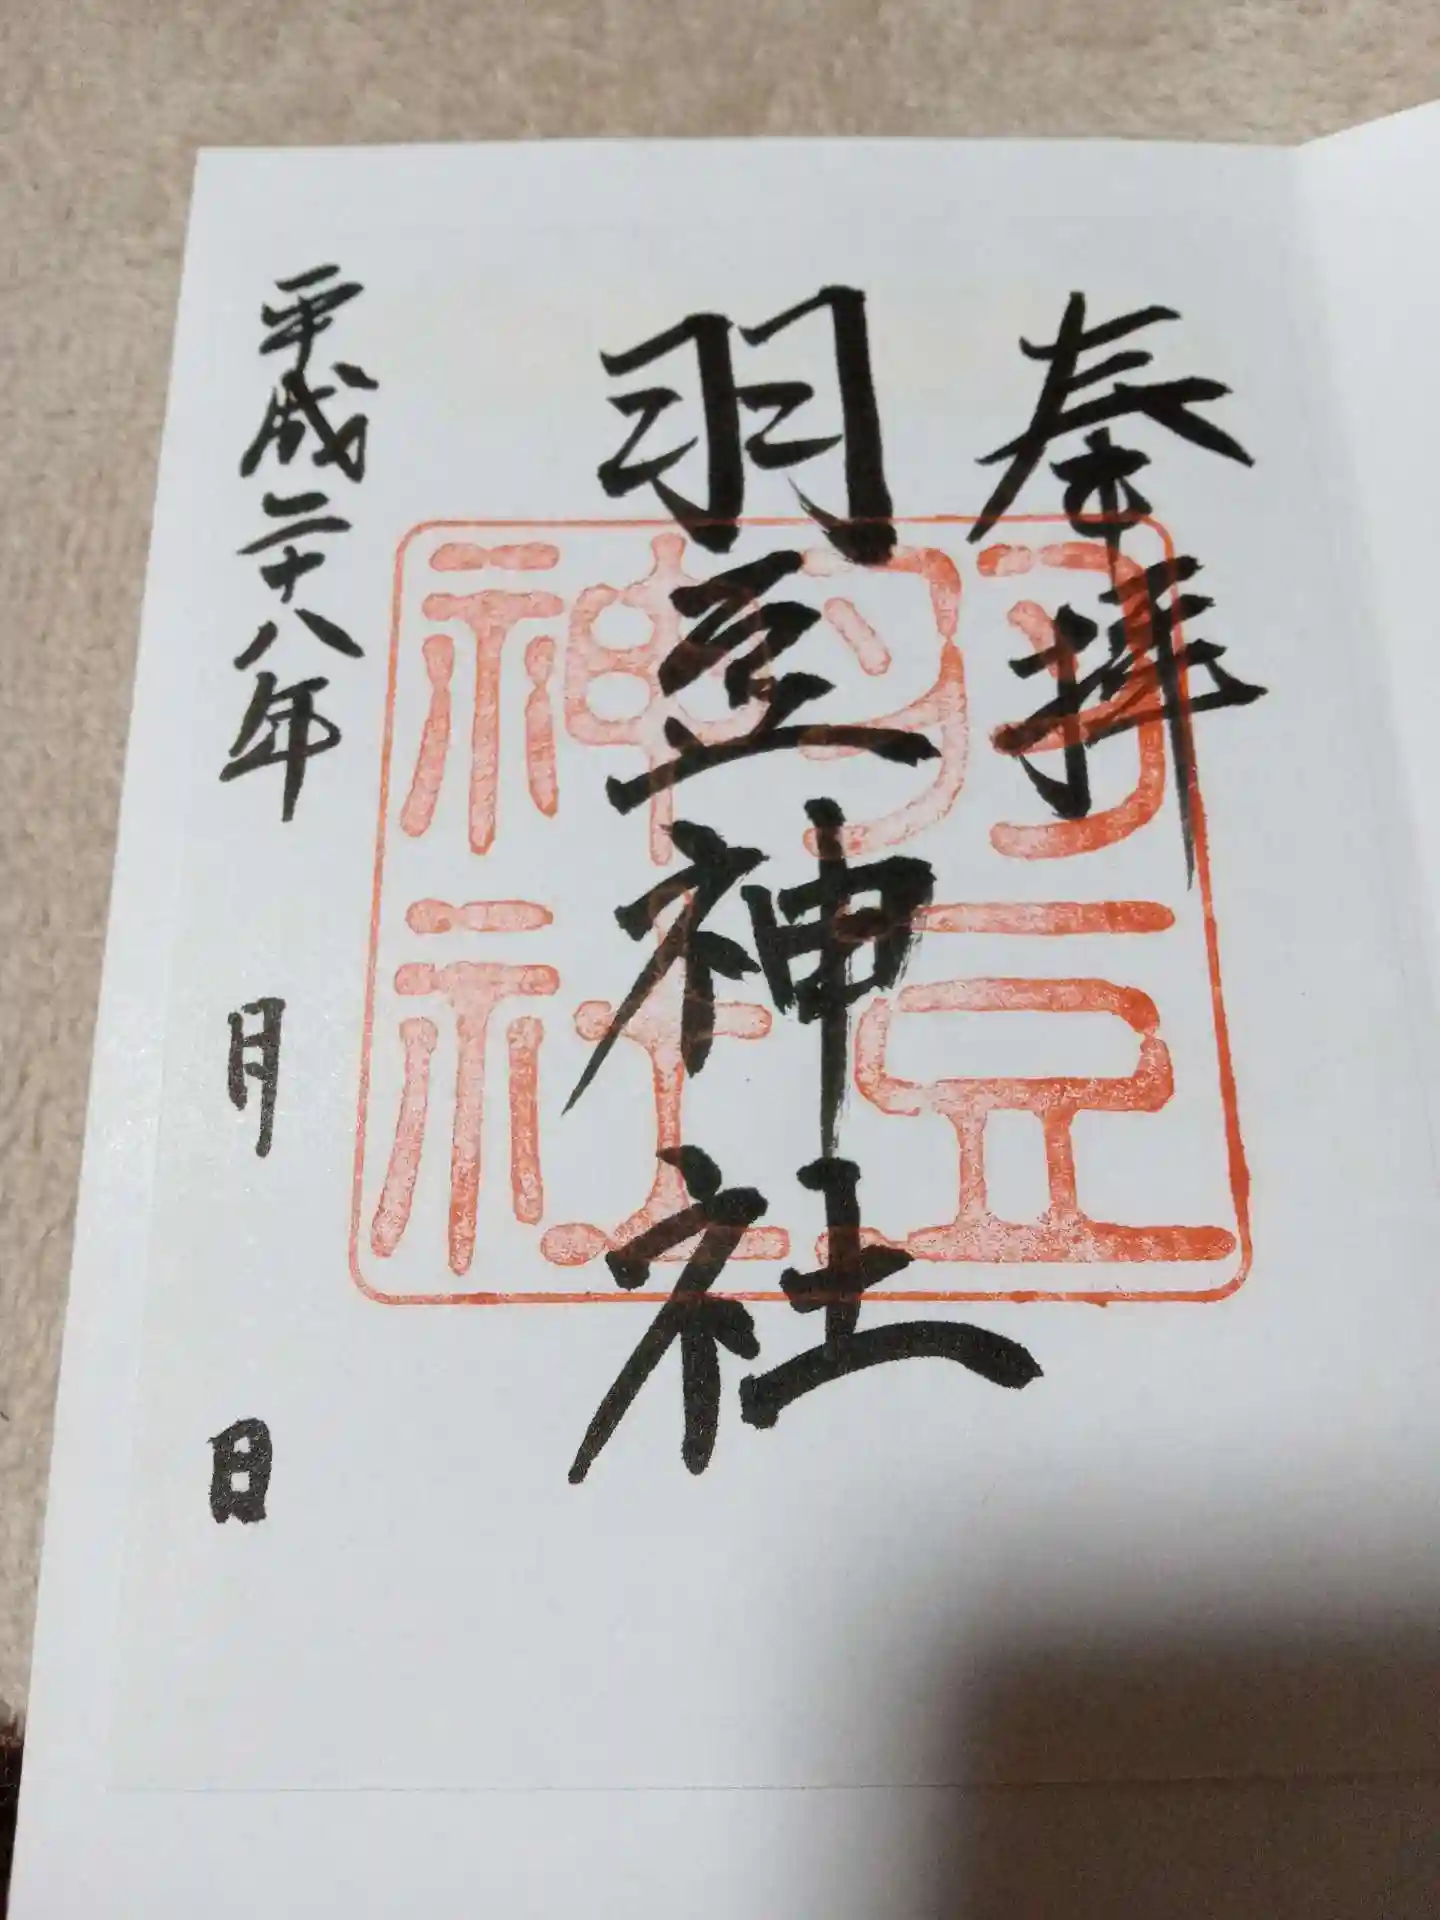 奉拝
羽豆神社
羽豆神社
平成二十八年　月　日